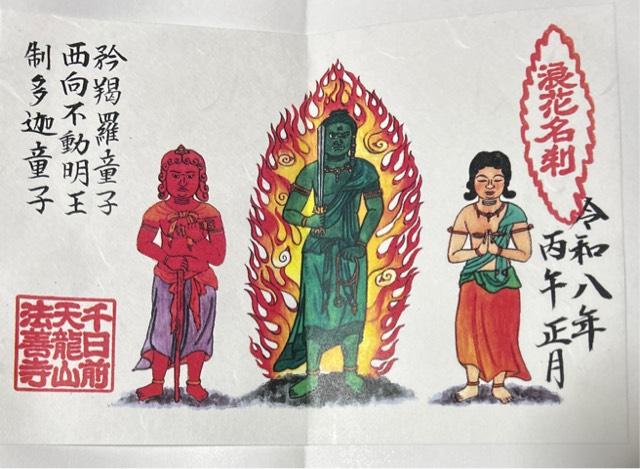 浪花名刹
令和八年
丙午 正月
矜羯羅童子
西向不動明王
制多迦童子
千日前
天龍山
法善寺